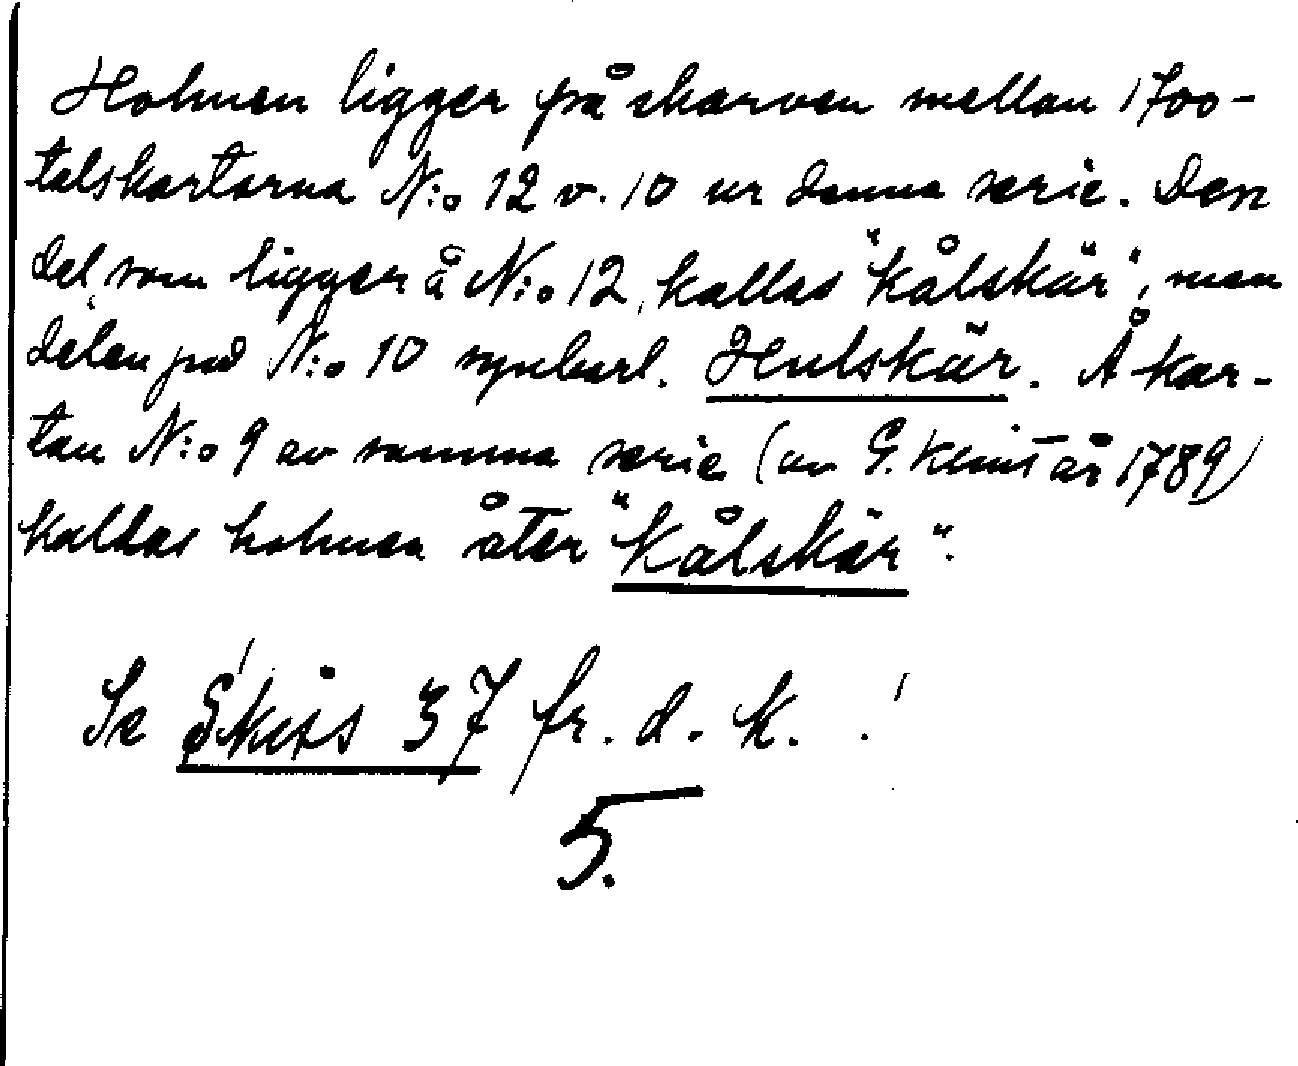 Holmen ligger på skarven mellan 1700-
talskartorna N:o 12 o. 10 ur denna serie. Den
del, som ligger å N:o 12, kallas "Kålskär", men
delen på N:o 10 synbarl. Hulskär. Å kar-
tan N:o 9 av samma serie (av G. Klint år 1789)
kallas holmen åter "Kålskär".
Se Skiss 37 fr. d. k. !
5.